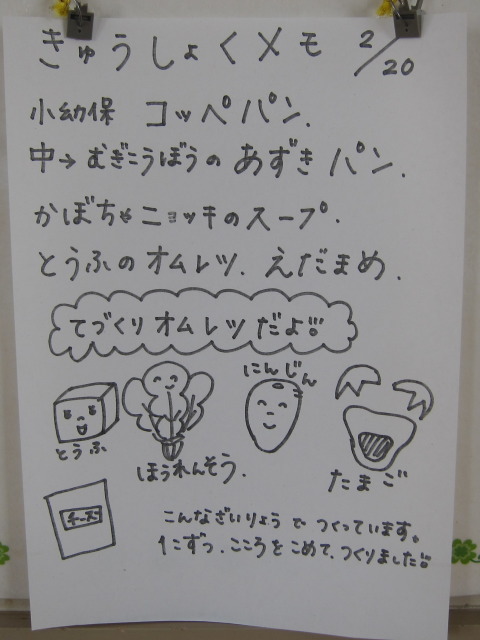 きゅうしょくメモ 2/20
小幼保 コッペパン.
中→むぎこうぼうのあずきパン.
かぼちゃニョッキのスープ.
とうふのオムレツ. えだまめ.
てづくりオムレツだよ!!
とうふ
ほうれんそう.
にんじん
たまご
チーズ
こんなざいりょうでつくっています。
1こずつ.こころをこめて.つくりました!!